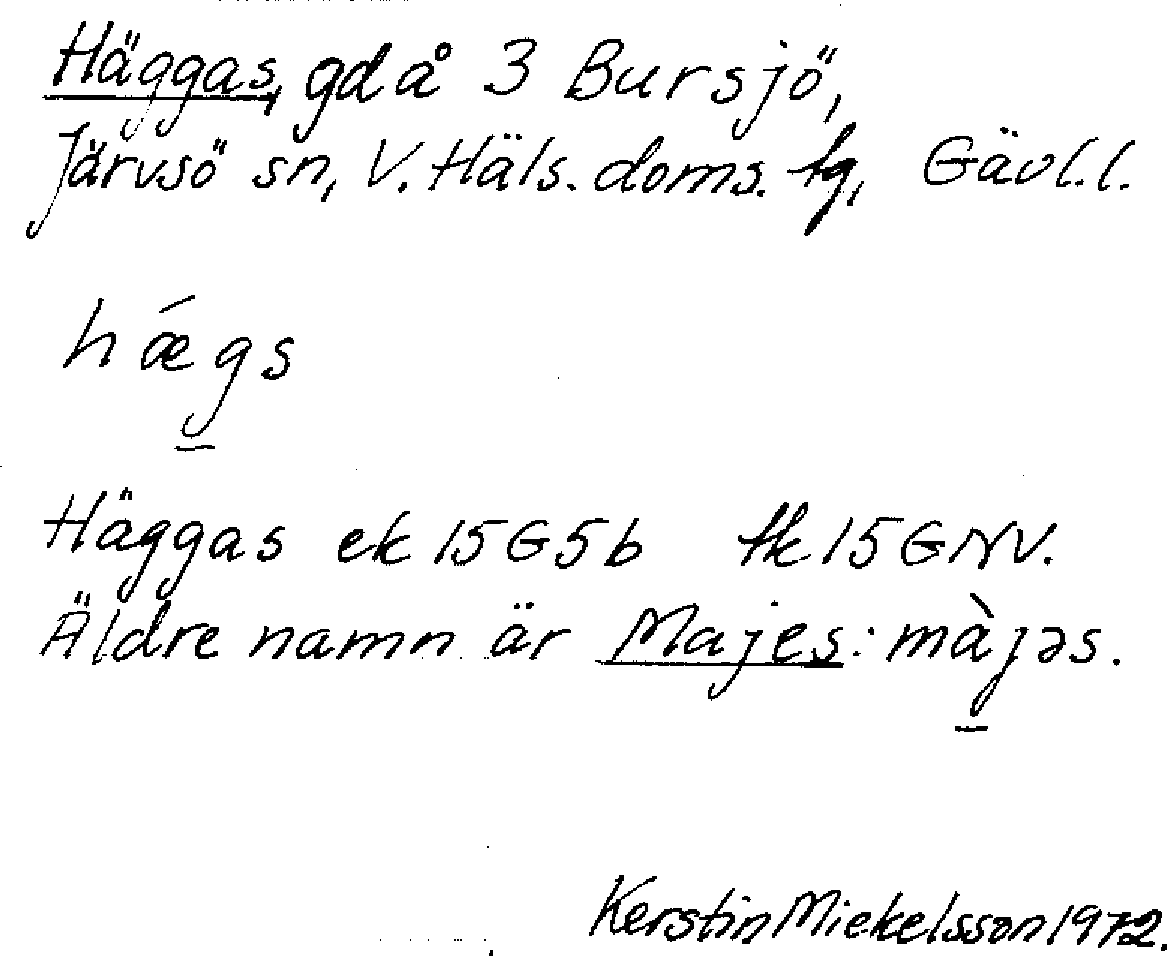 Häggas, gd å 3 Bursjö,
Järvsö sn, V. Häls. doms. tg, Gävl.l.
hǽg̲s
Häggas ek 15G5b tk 15GNV.
Äldre namn är Majes: màj̲əs.
Kerstin Mickelsson 1972.